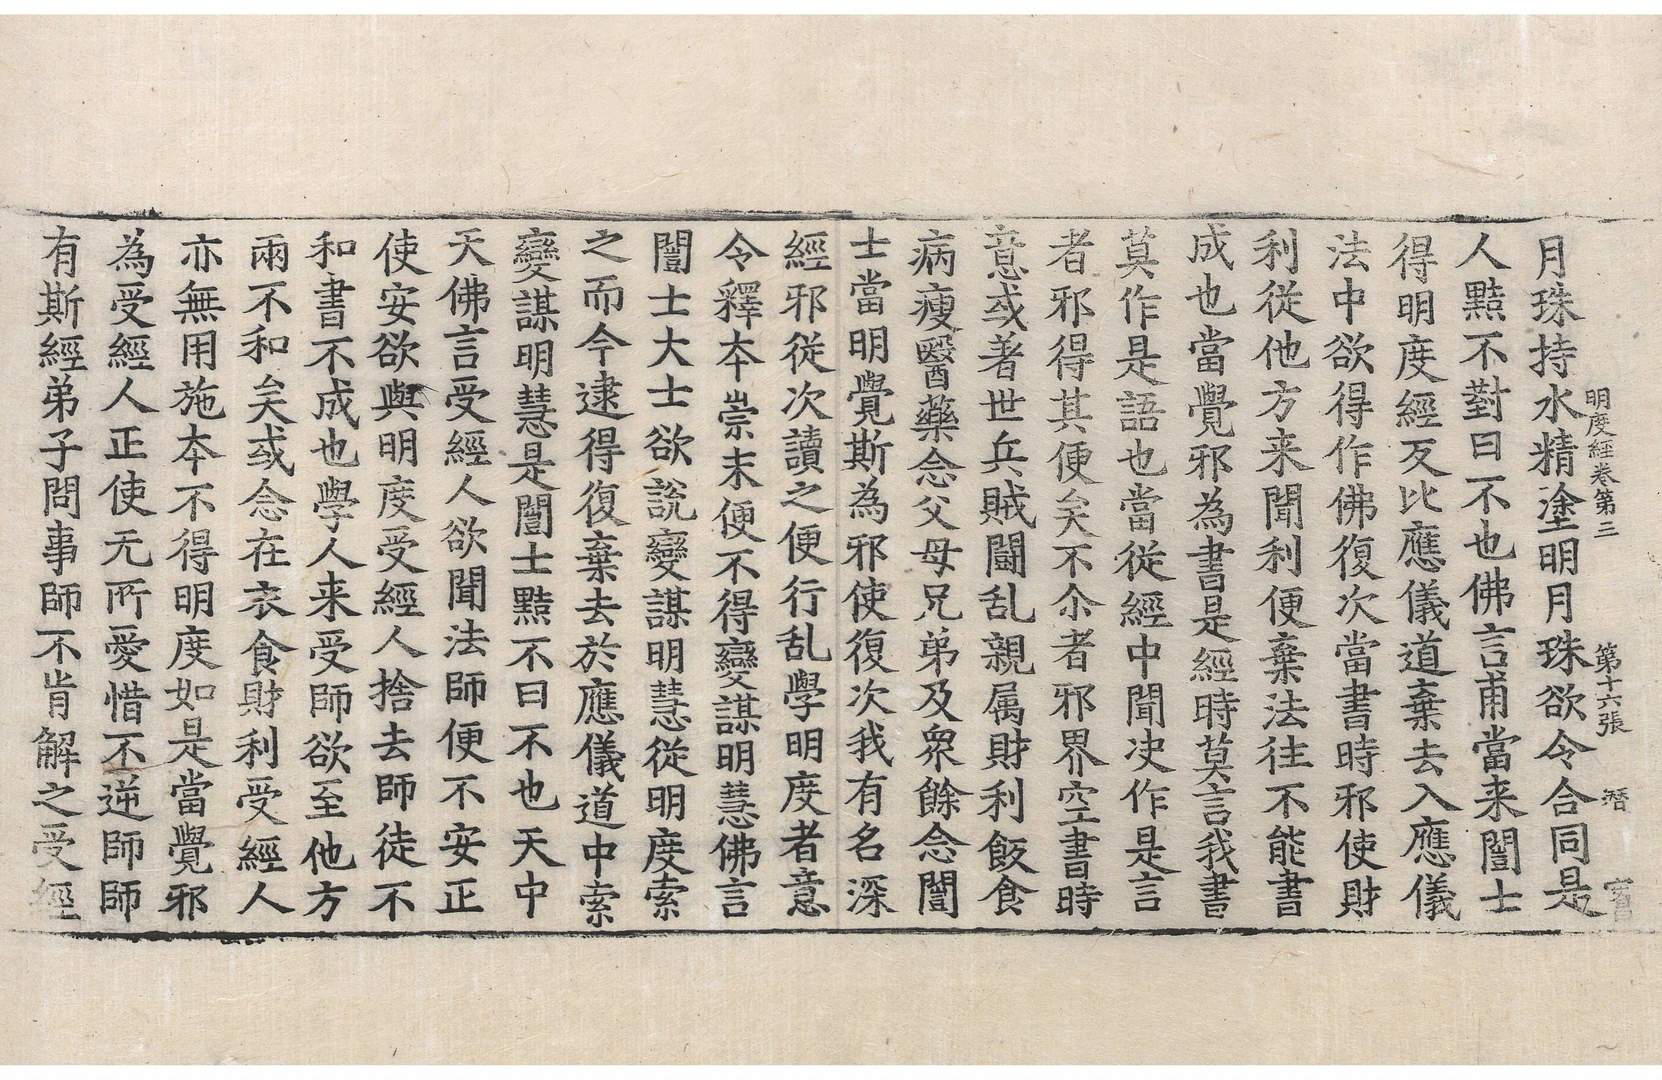 明度經卷第三　第十六張　潛
月珠持水精塗明月珠欲令合同是
人黠不對曰不也佛言甫當来闓士
得明度經反比應儀道棄去入應儀
法中欲得作佛復次當書時邪使財
利從他方来聞利便棄法往不能書
成也當覺邪為書是經時莫言我書
莫作是語也當從經中聞决作是言
者邪得其便矣不尒者邪界空書時
意或著世兵賊鬪乱親属財利飯食
病瘦毉藥念父母兄弟及衆餘念闓
士當明覺斯為邪使復次我有名深
經邪從次讀之便行乱學明度者意
令釋夲崇末便不得變謀明慧佛言
闓士大士欲說變謀明慧從明度索
之而今逮得復棄去於應儀道中索
變謀明慧是闓士黠不曰不也天中
天佛言受經人欲聞法師便不安正
使安欲與明度受經人捨去師徒不
和書不成也學人来受師欲至他方
兩不和矣或念在衣食財利受經人
亦無用施夲不得明度如是當覺邪
為受經人正使无所愛惜不逆師師
有斯經弟子問事師不肯解之受經